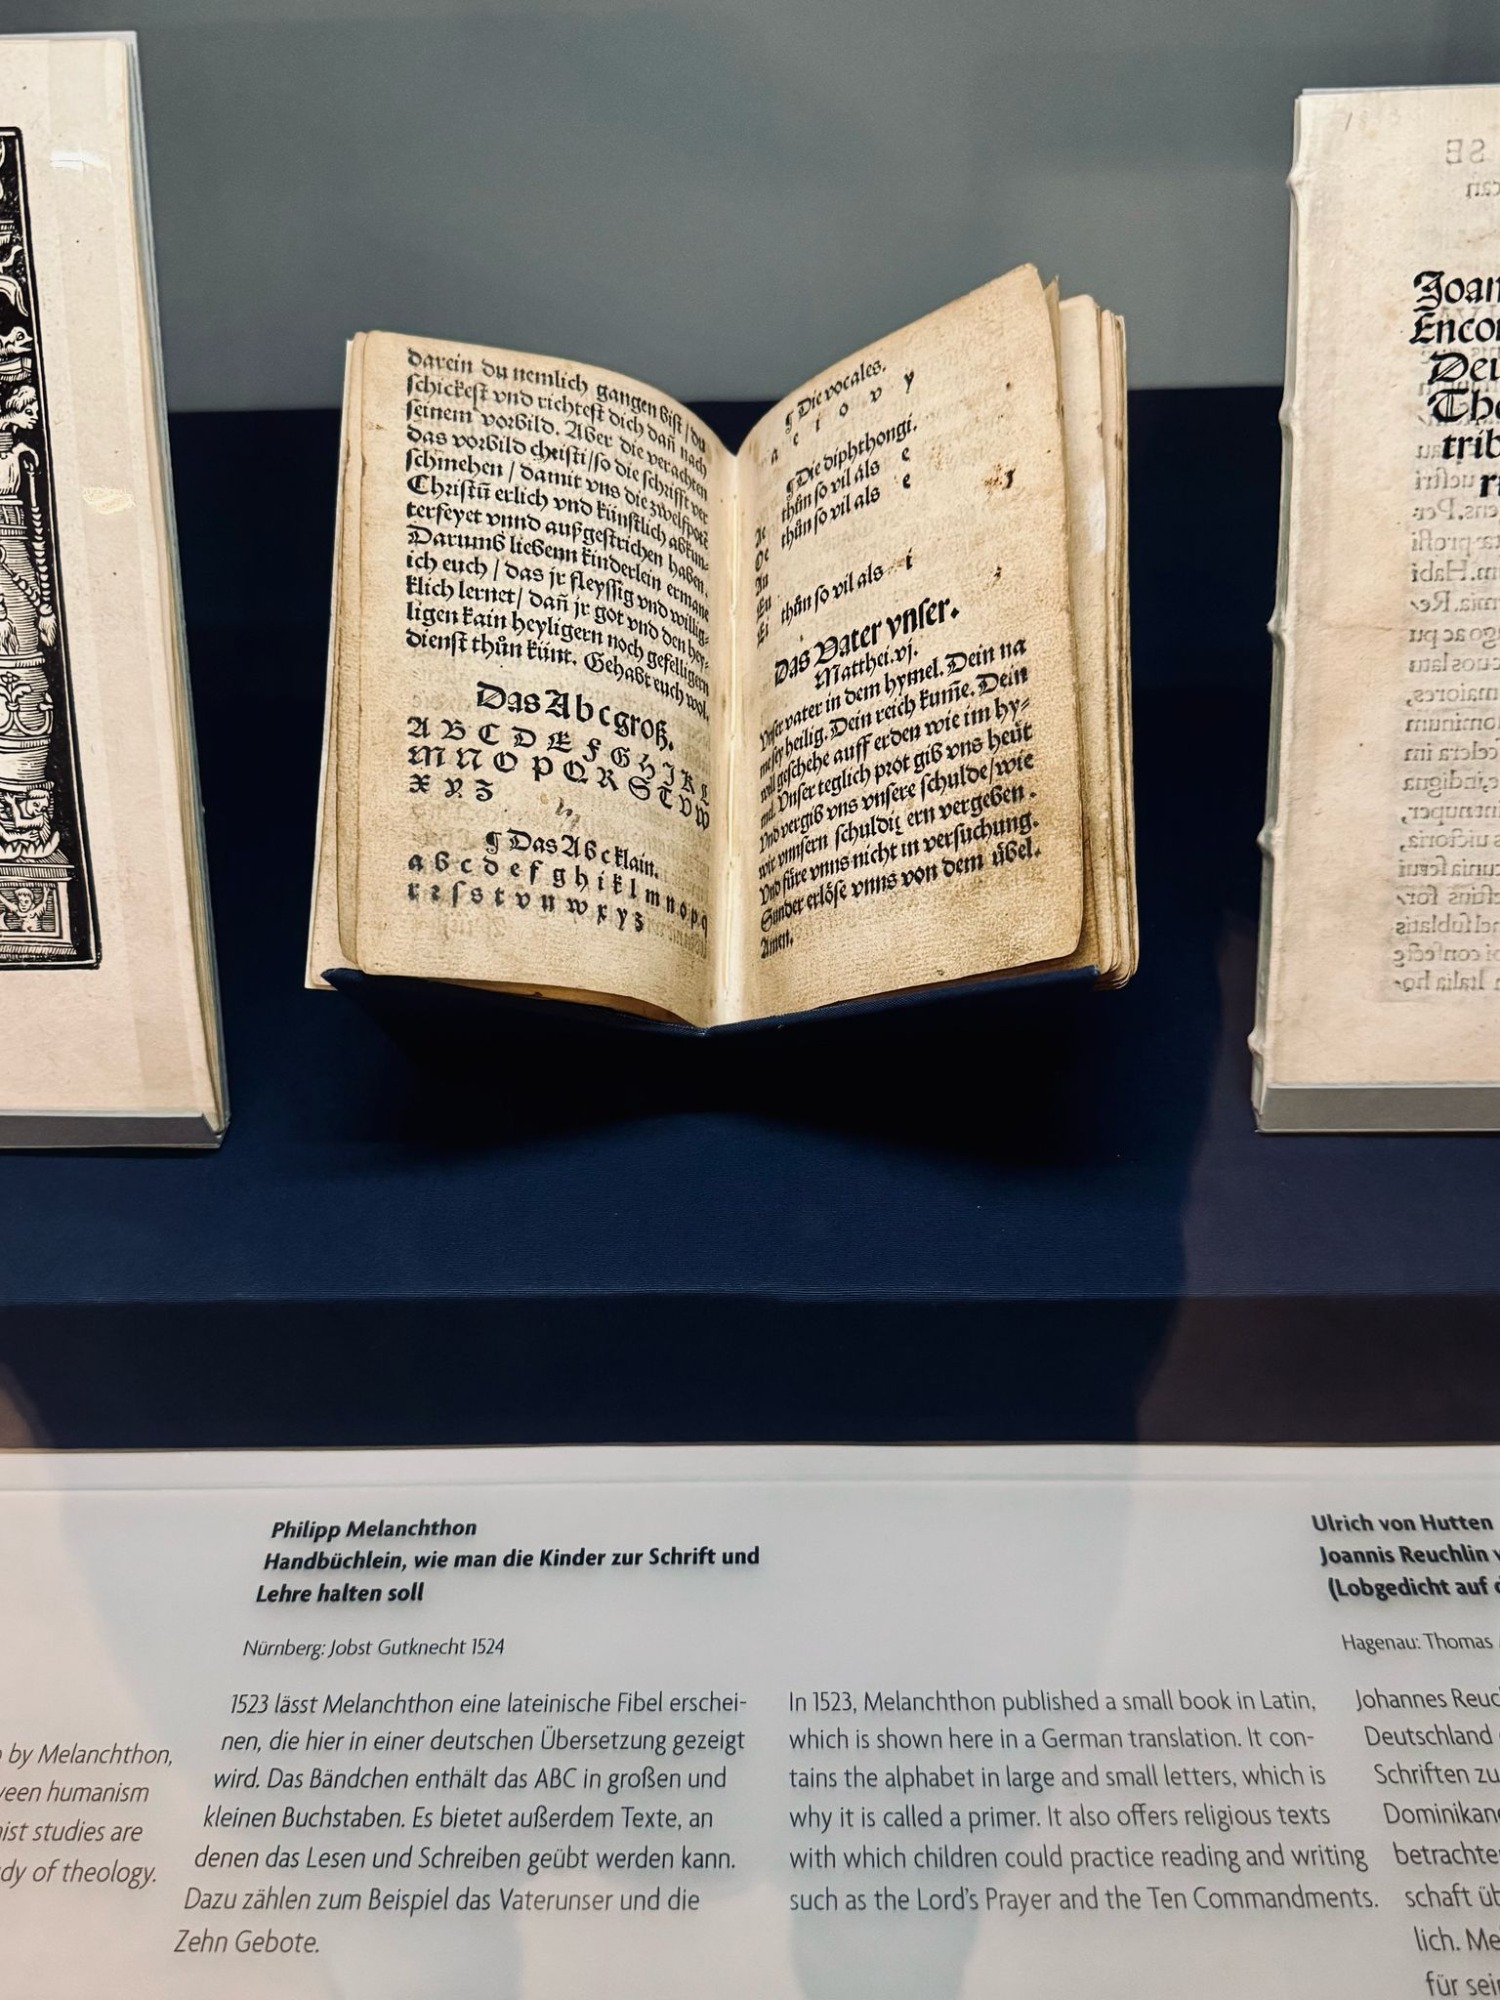 darein du nemlich gangen bist / du
schickest vnd richtest dich dañ nach
seinem vorbild. Aber die verachten
das vorbild christi / so die schrifft ver
schmehen / damit vns die zwelfpott
Christū erlich vnd künstlich abkun⸗
terfeyet vnnd außgestrichen haben.
Darumb liebenn kinderlein ermane
ich euch / das jr fleyssig vnd willig⸗
klich lernet / dañ jr got vnd den hey⸗
ligen kain heyligern noch gefelligern
dienst thůn künt. Gehabt euch wol.
Das Abc groß.
A B C D E F G H I K L
M N O P Q R S T V W
X Y Z
¶ Das Abc klain.
a b c d e f g h i k l m n o p q
r ꝛ ſ s t v u w x y z
¶ Die vocales.
a e i o v y
¶ Die diphthongi.
Ae thůn so vil als e
Oe thůn so vil als e
Au
Eu
Ei thůn so vil als i
Das Vater vnser.
Matthei. vj.
Vnser vater in dem hymel. Dein na
me sey heilig. Dein reich kum̄e. Dein
will geschehe auff erden wie im hy⸗
mel. Vnser teglich prot gib vns heüt
Vnd vergib vns vnsere schulde / wie
wir vnnsern schuldig ern vergeben.
Vnd füre vnns nicht in versuchung.
Sunder erlöse vnns von dem übel.
Amen.
SE
Joan
Encom
Deu
tribu
Philipp Melanchthon
Handbüchlein, wie man die Kinder zur Schrift und
Lehre halten soll
Nürnberg: Jobst Gutknecht 1524
1523 lässt Melanchthon eine lateinische Fibel erschei-
nen, die hier in einer deutschen Übersetzung gezeigt
wird. Das Bändchen enthält das ABC in großen und
kleinen Buchstaben. Es bietet außerdem Texte, an
denen das Lesen und Schreiben geübt werden kann.
Dazu zählen zum Beispiel das Vaterunser und die
Zehn Gebote.
In 1523, Melanchthon published a small book in Latin,
which is shown here in a German translation. It con-
tains the alphabet in large and small letters, which is
why it is called a primer. It also offers religious texts
with which children could practice reading and writing
such as the Lord's Prayer and the Ten Commandments.
by Melanchthon,
ween humanism
ist studies are
dy of theology.
Ulrich von Hutten
Joannis Reuchlin
(Lobgedicht auf
Hagenau: Thomas
Johannes Reuc
Deutschland
Schriften zu
Dominikan
betrachte
schaft üb
lich. Me
für sei